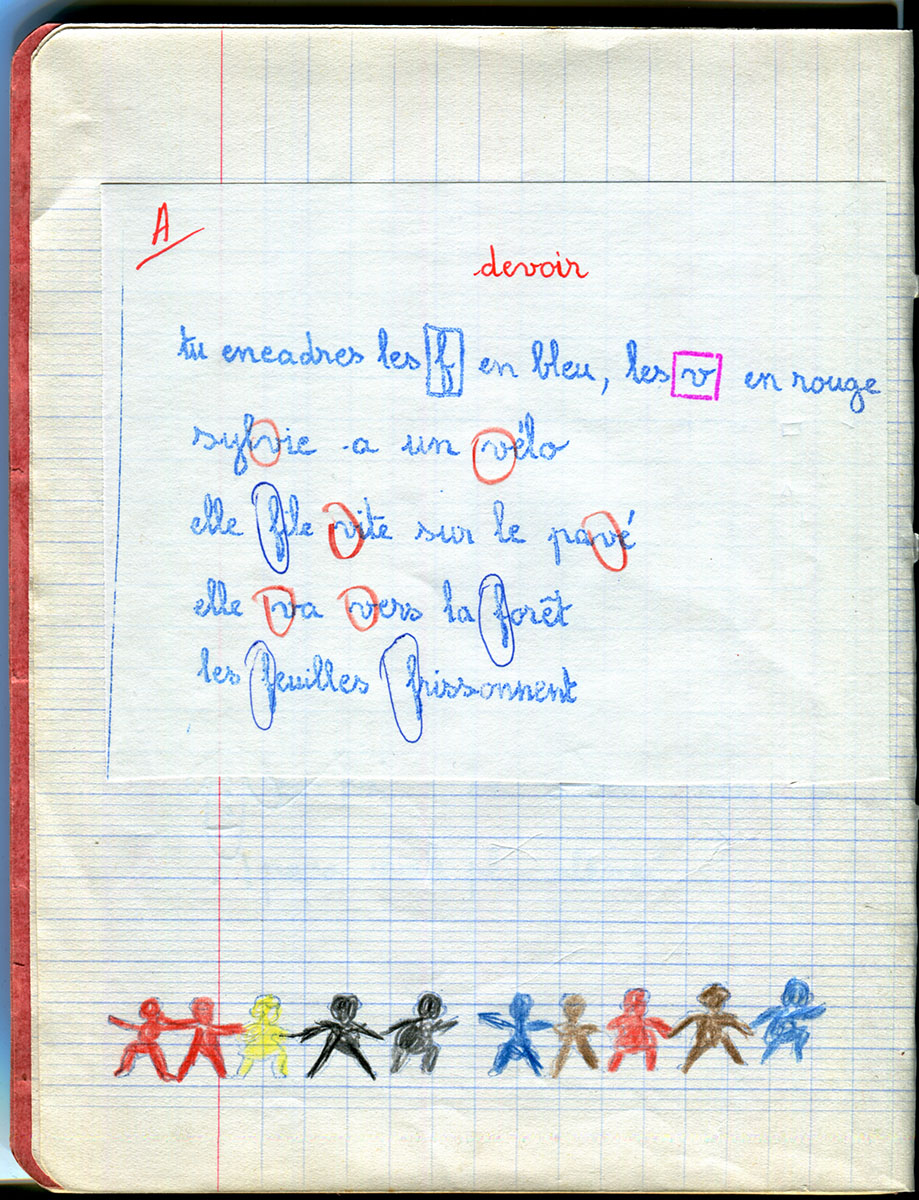 A
devoir
tu encadres les f en bleu, les v en rouge
sylvie a un vélo
elle file vite sur le pavé
elle va vers la forêt
les feuilles frissonnent